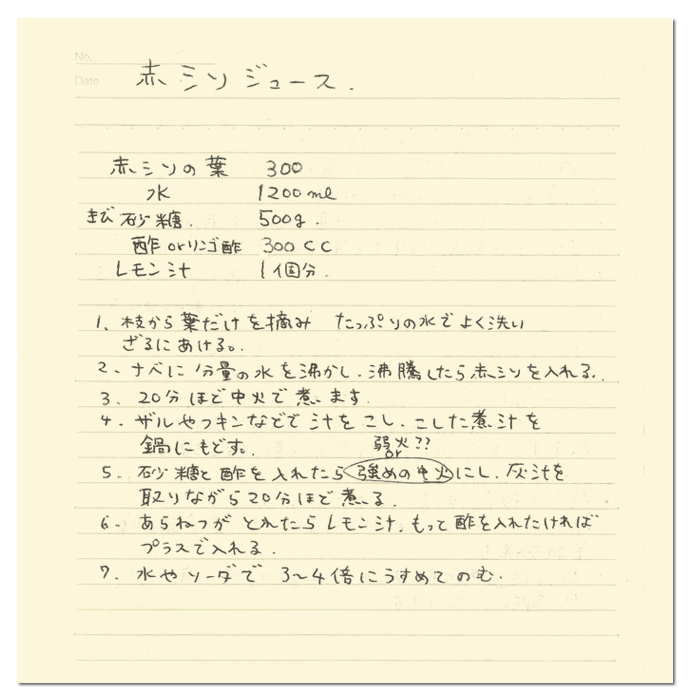 No.
Date
赤シソジュース.
赤シソの葉 300
水 1200ml
きび砂糖. 500g.
酢orリンゴ酢 300CC
レモン汁 1個分.
1、枝から葉だけを摘み たっぷりの水でよく洗い
ざるにあける。
2、ナベに分量の水を沸かし、沸騰したら赤シソを入れる。
3、20分ほど中火で煮ます。
4、ザルやフキンなどで汁をこし、こした煮汁を
鍋にもどす。
弱火??
or
5、砂糖と酢を入れたら強めの中火にし、灰汁を
取りながら20分ほど煮る。
6、あらねつがとれたらレモン汁、もって酢を入れたければ
プラスで入れる。
7、水やソーダで3〜4倍にうすめてのむ。